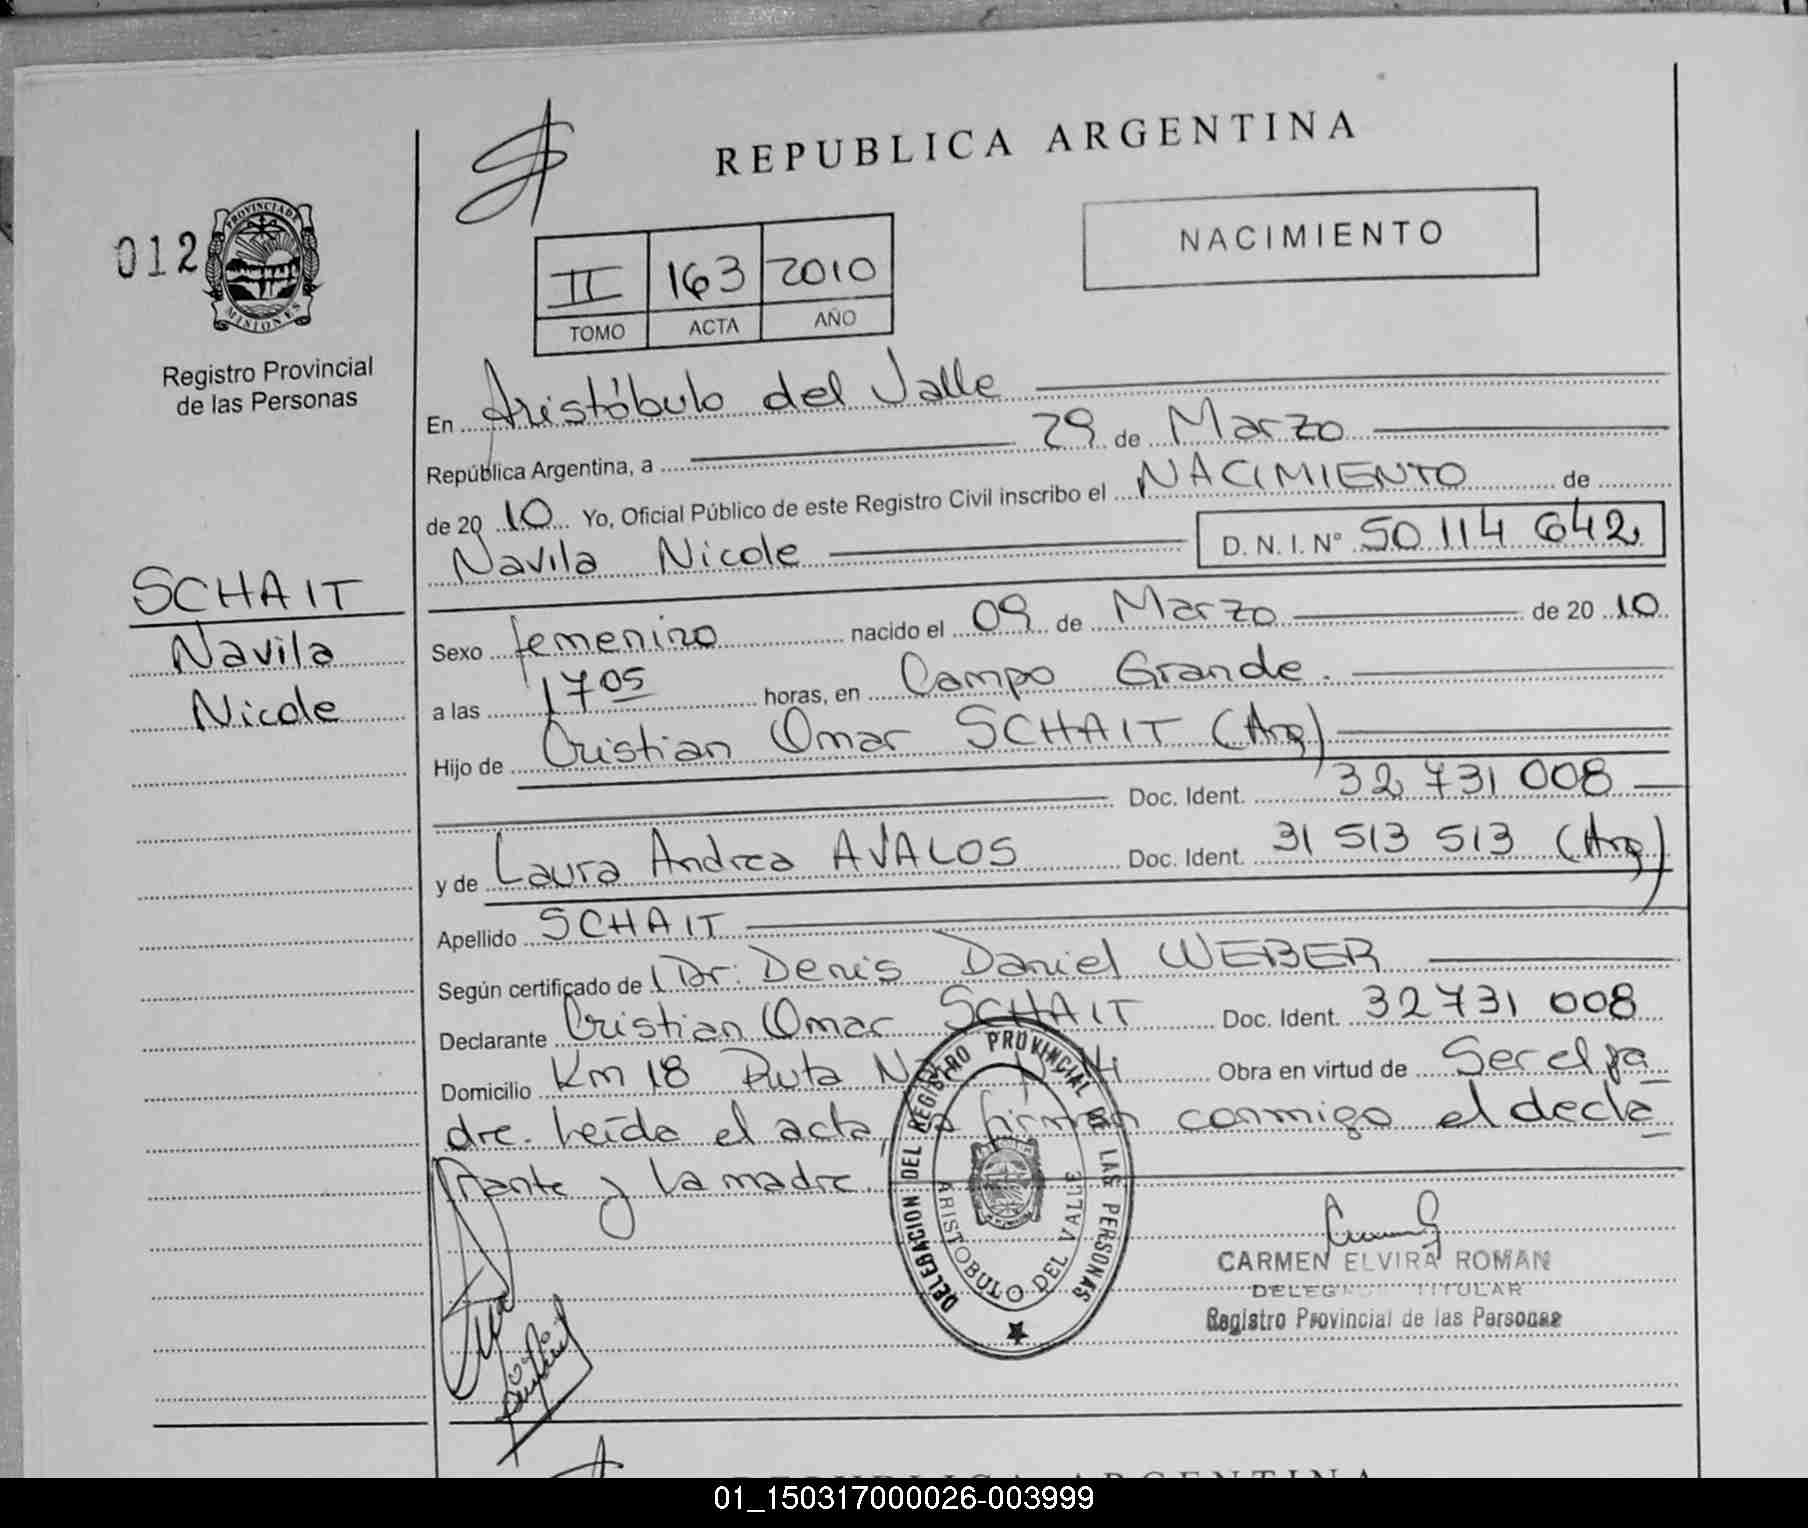 REPUBLICA ARGENTINA
NACIMIENTO
012
PROVINCIA DE
MISIONES
Registro Provincial
de las Personas
II 163 2010
TOMO ACTA AÑO
En Aristóbulo del Valle
República Argentina, a 29 de Marzo
de 20 10 Yo, Oficial Público de este Registro Civil inscribo el NACIMIENTO de
Navila Nicole D.N.I. Nº 50 114 642
SCHAIT
Navila
Nicole
Sexo femenino nacido el 09 de Marzo de 20 10
a las 17 05 horas, en Campo Grande.
Hijo de Cristian Omar SCHAIT (Arg)
Doc. Ident. 32 731 008
y de Laura Andrea AVALOS Doc. Ident. 31 513 513 (Arg)
Apellido SCHAIT
Según certificado de Dr. Denis Daniel WEBER
Declarante Cristian Omar SCHAIT Doc. Ident. 32 731 008
Domicilio Km 18 Ruta 14 Obra en virtud de Ser el pa
dre. Leída el acta, la firman conmigo el decla
rante y la madre.
DELEGACION DEL REGISTRO PROVINCIAL DE LAS PERSONAS
ARISTOBULO DEL VALLE
CARMEN ELVIRA ROMAN
TITULAR
Registro Provincial de las Personas
REPUBLICA ARGENTINA
01_150317000026-003999